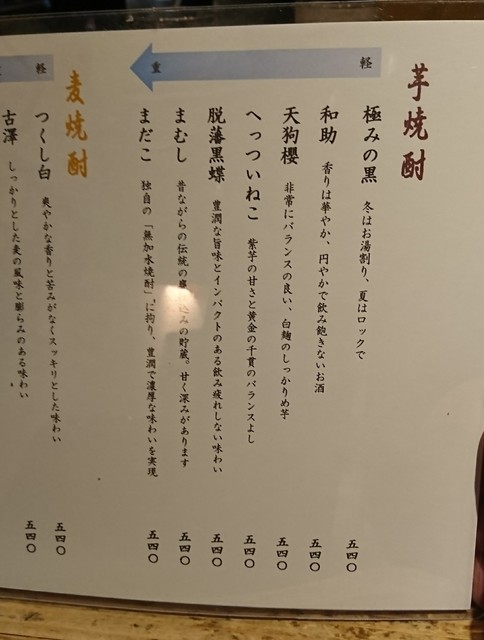 芋焼酎
軽
重
極みの黒 冬はお湯割り、夏はロックで 五四〇
和助 香りは華やか、円やかで飲み飽きないお酒 五四〇
天狗櫻 非常にバランスの良い、白麹のしっかりめ芋 五四〇
へっついねこ 紫芋の甘さと黄金の千貫のバランスよし 五四〇
脱藩黒蝶 豊潤な旨味とインパクトのある飲み疲れしない味わい 五四〇
まむし 昔ながらの伝統の込みの貯蔵。甘く深みがあります 五四〇
まだこ 独自の「無加水焼酎」に拘り、豊潤で濃厚な味わいを実現 五四〇
麦焼酎
軽
つくし白 爽やかな香りと苦みがなくスッキリとした味わい 五四〇
古澤 しっかりとした麦の風味と膨らみのある味わい 五四〇